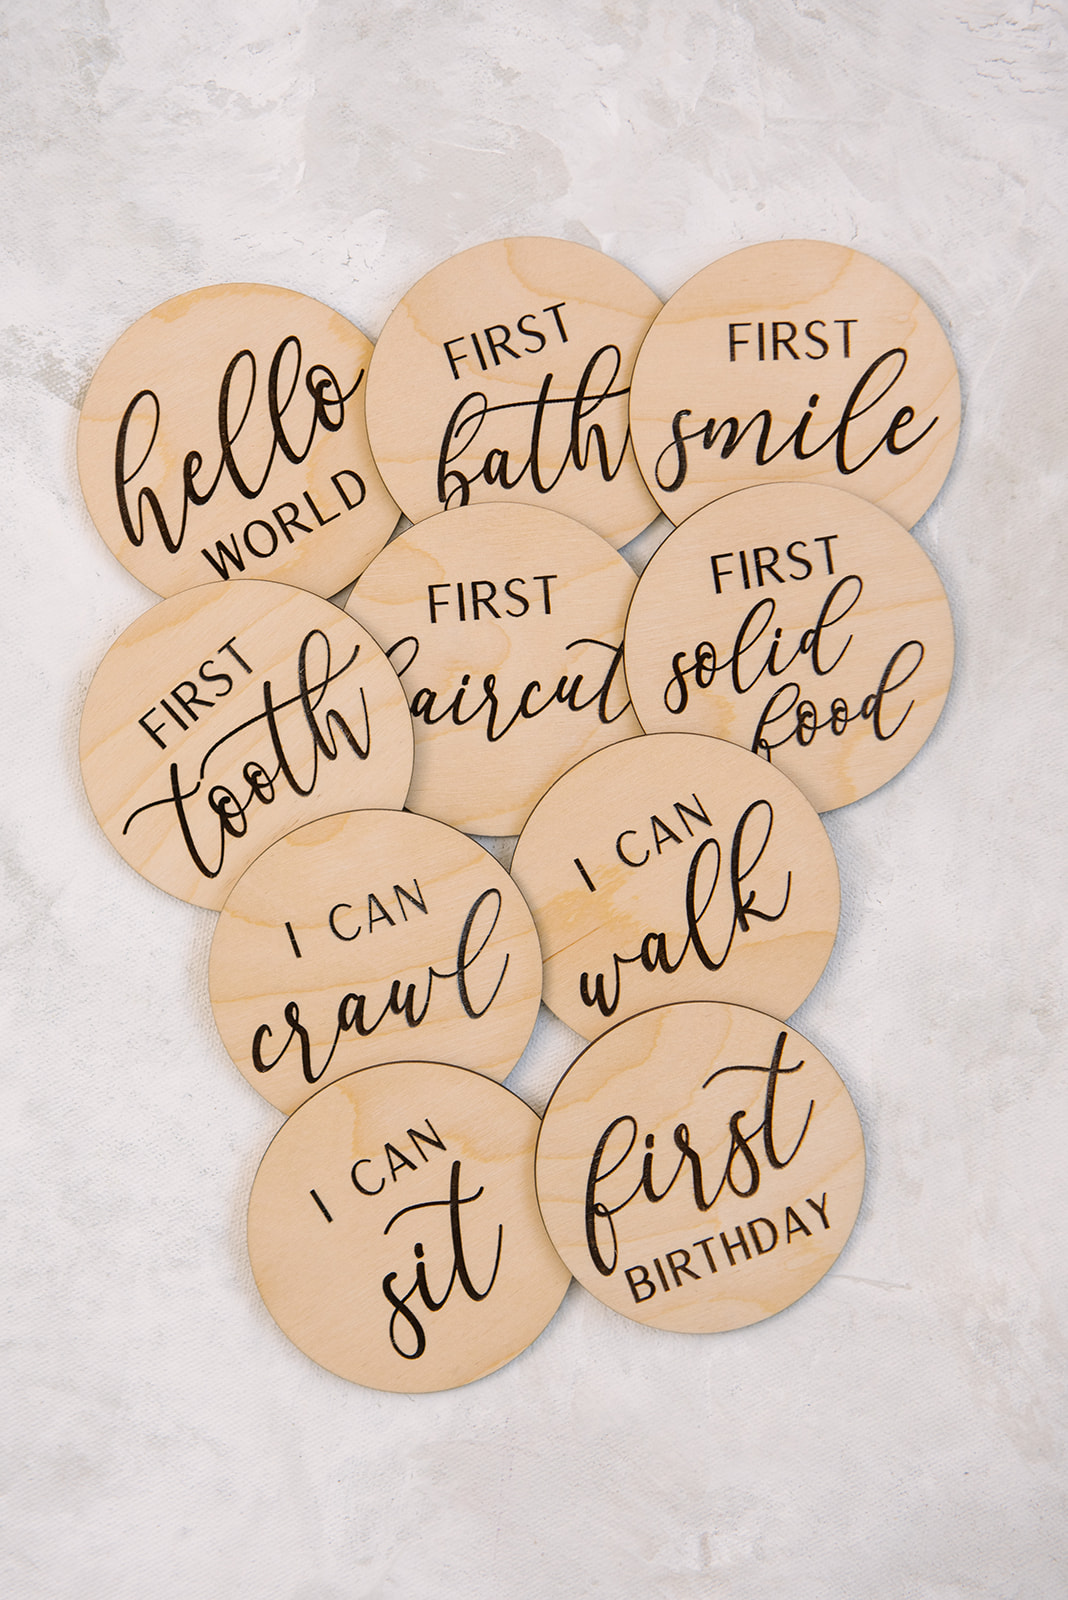 hello
WORLD
FIRST
bath
FIRST
smile
FIRST
tooth
FIRST
haircut
FIRST
solid
food
I CAN
crawl
I CAN
walk
I CAN
sit
first
BIRTHDAY